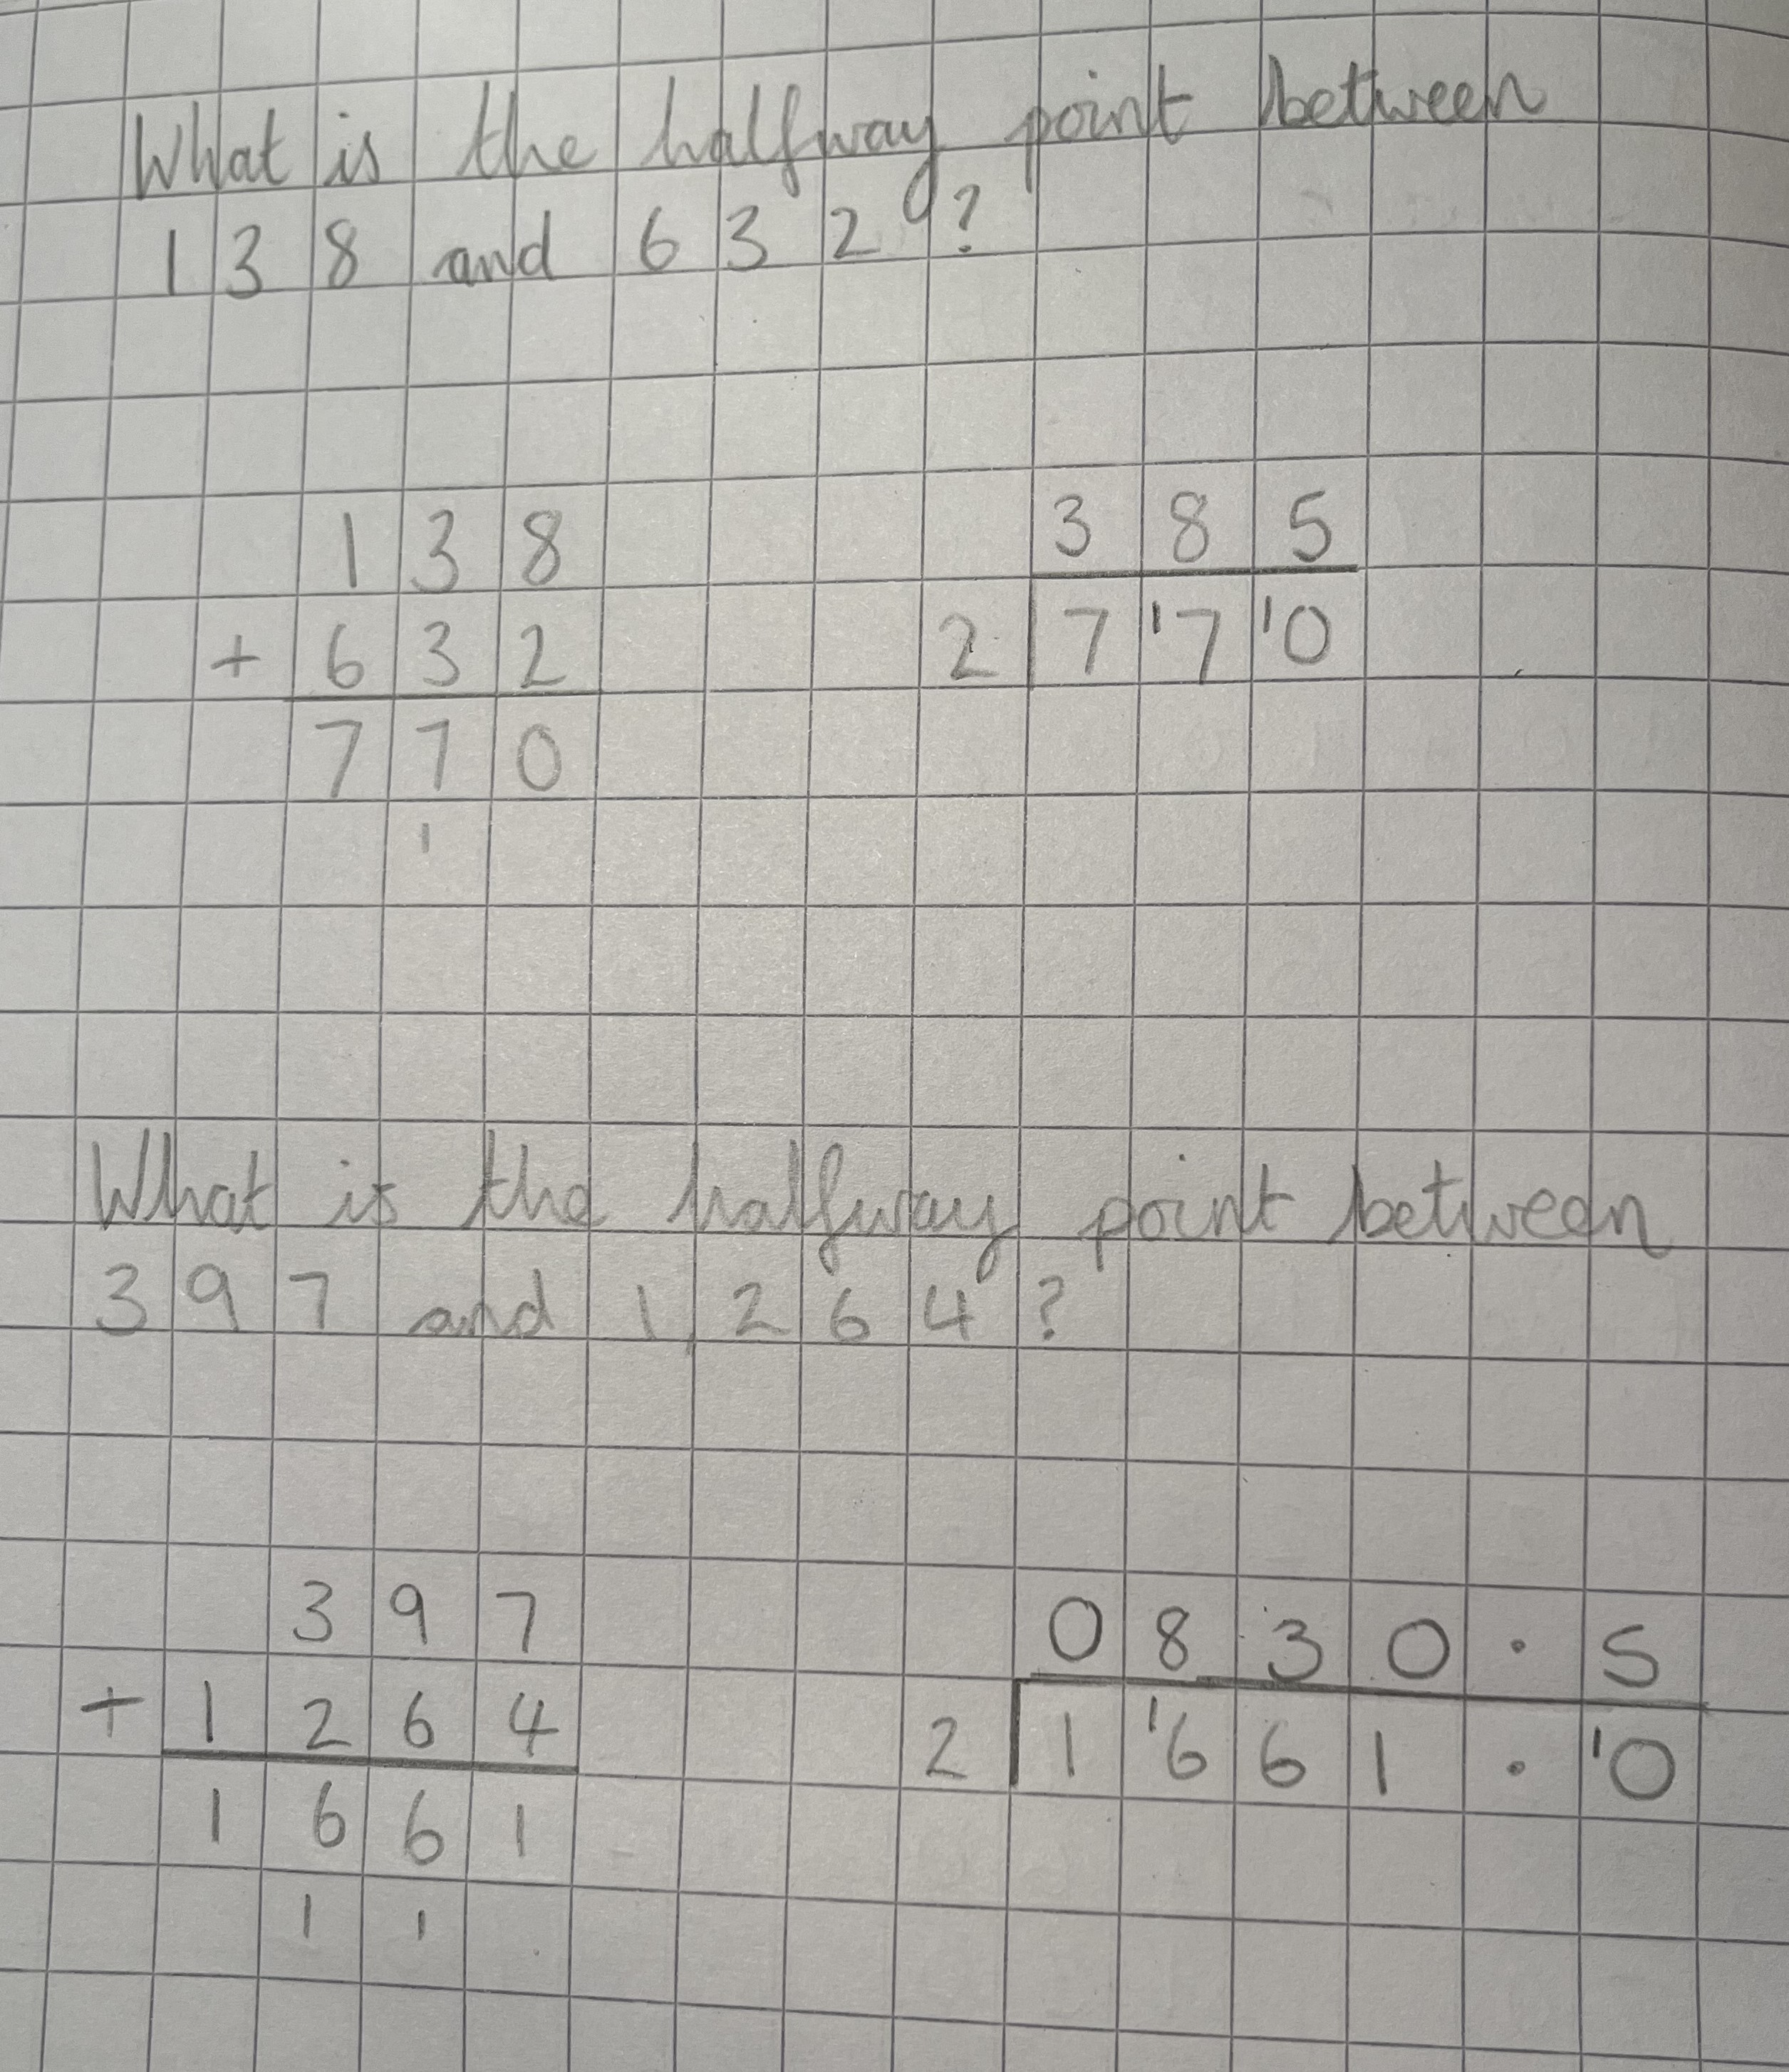 What is the halfway point between
138 and 632?
138
+ 632
770
1
385
2 7 ¹7 ¹0
What is the halfway point between
397 and 1,264?
397
+ 1264
1661
1 1
0830.5
2 1 ¹6 6 1 . ¹0